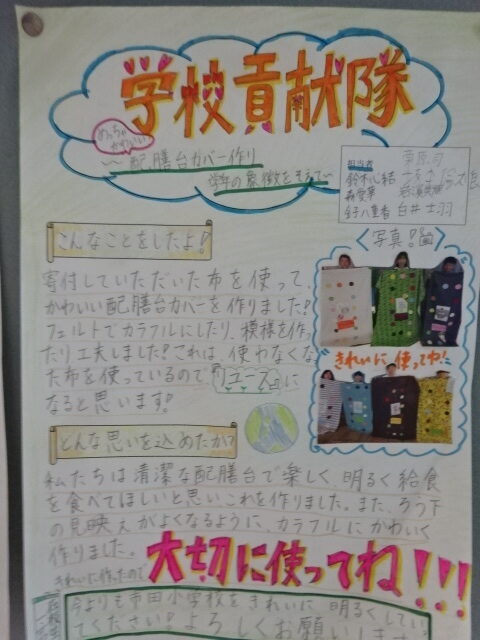 学校貢献隊
めっちゃかわいい
～配膳台カバー作り
学年の象徴を考えて～
担当者
鈴木心結
森愛華
金子八重香 白井
〈写真!〉
こんなことをしたよ!
寄付していただいた布を使って、
かわいい配膳台カバーを作りました!
フェルトでカラフルにしたり、模様を作っ
たり工夫しました!これは、使わなくな
った布を使っているので、リユースに
なると思います!
きれいに使ってね!
どんな思いを込めたか?
私たちは清潔な配膳台で楽しく、明るく給食
を食べてほしいと思いこれを作りました。また、ろう下
の見映えがよくなるように、カラフルにかわいく
作りました。
きれいに作ったので
大切に使ってね!!!
今よりも市田小学校をきれいに、明るくしてい
てください!よろしくお願いしま